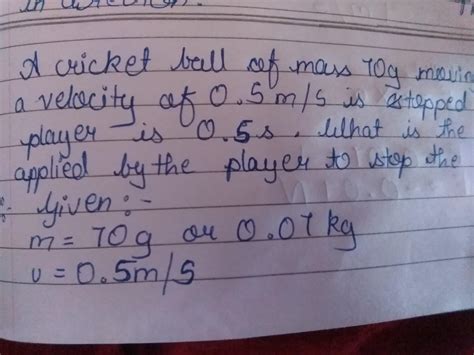 A cricket ball of mass 70g movin
a velocity of 0.5 m/s is stopped
player is 0.5s. What is the
applied by the player to stop the
Given :-
m = 70g or 0.07 kg
u = 0.5m/s